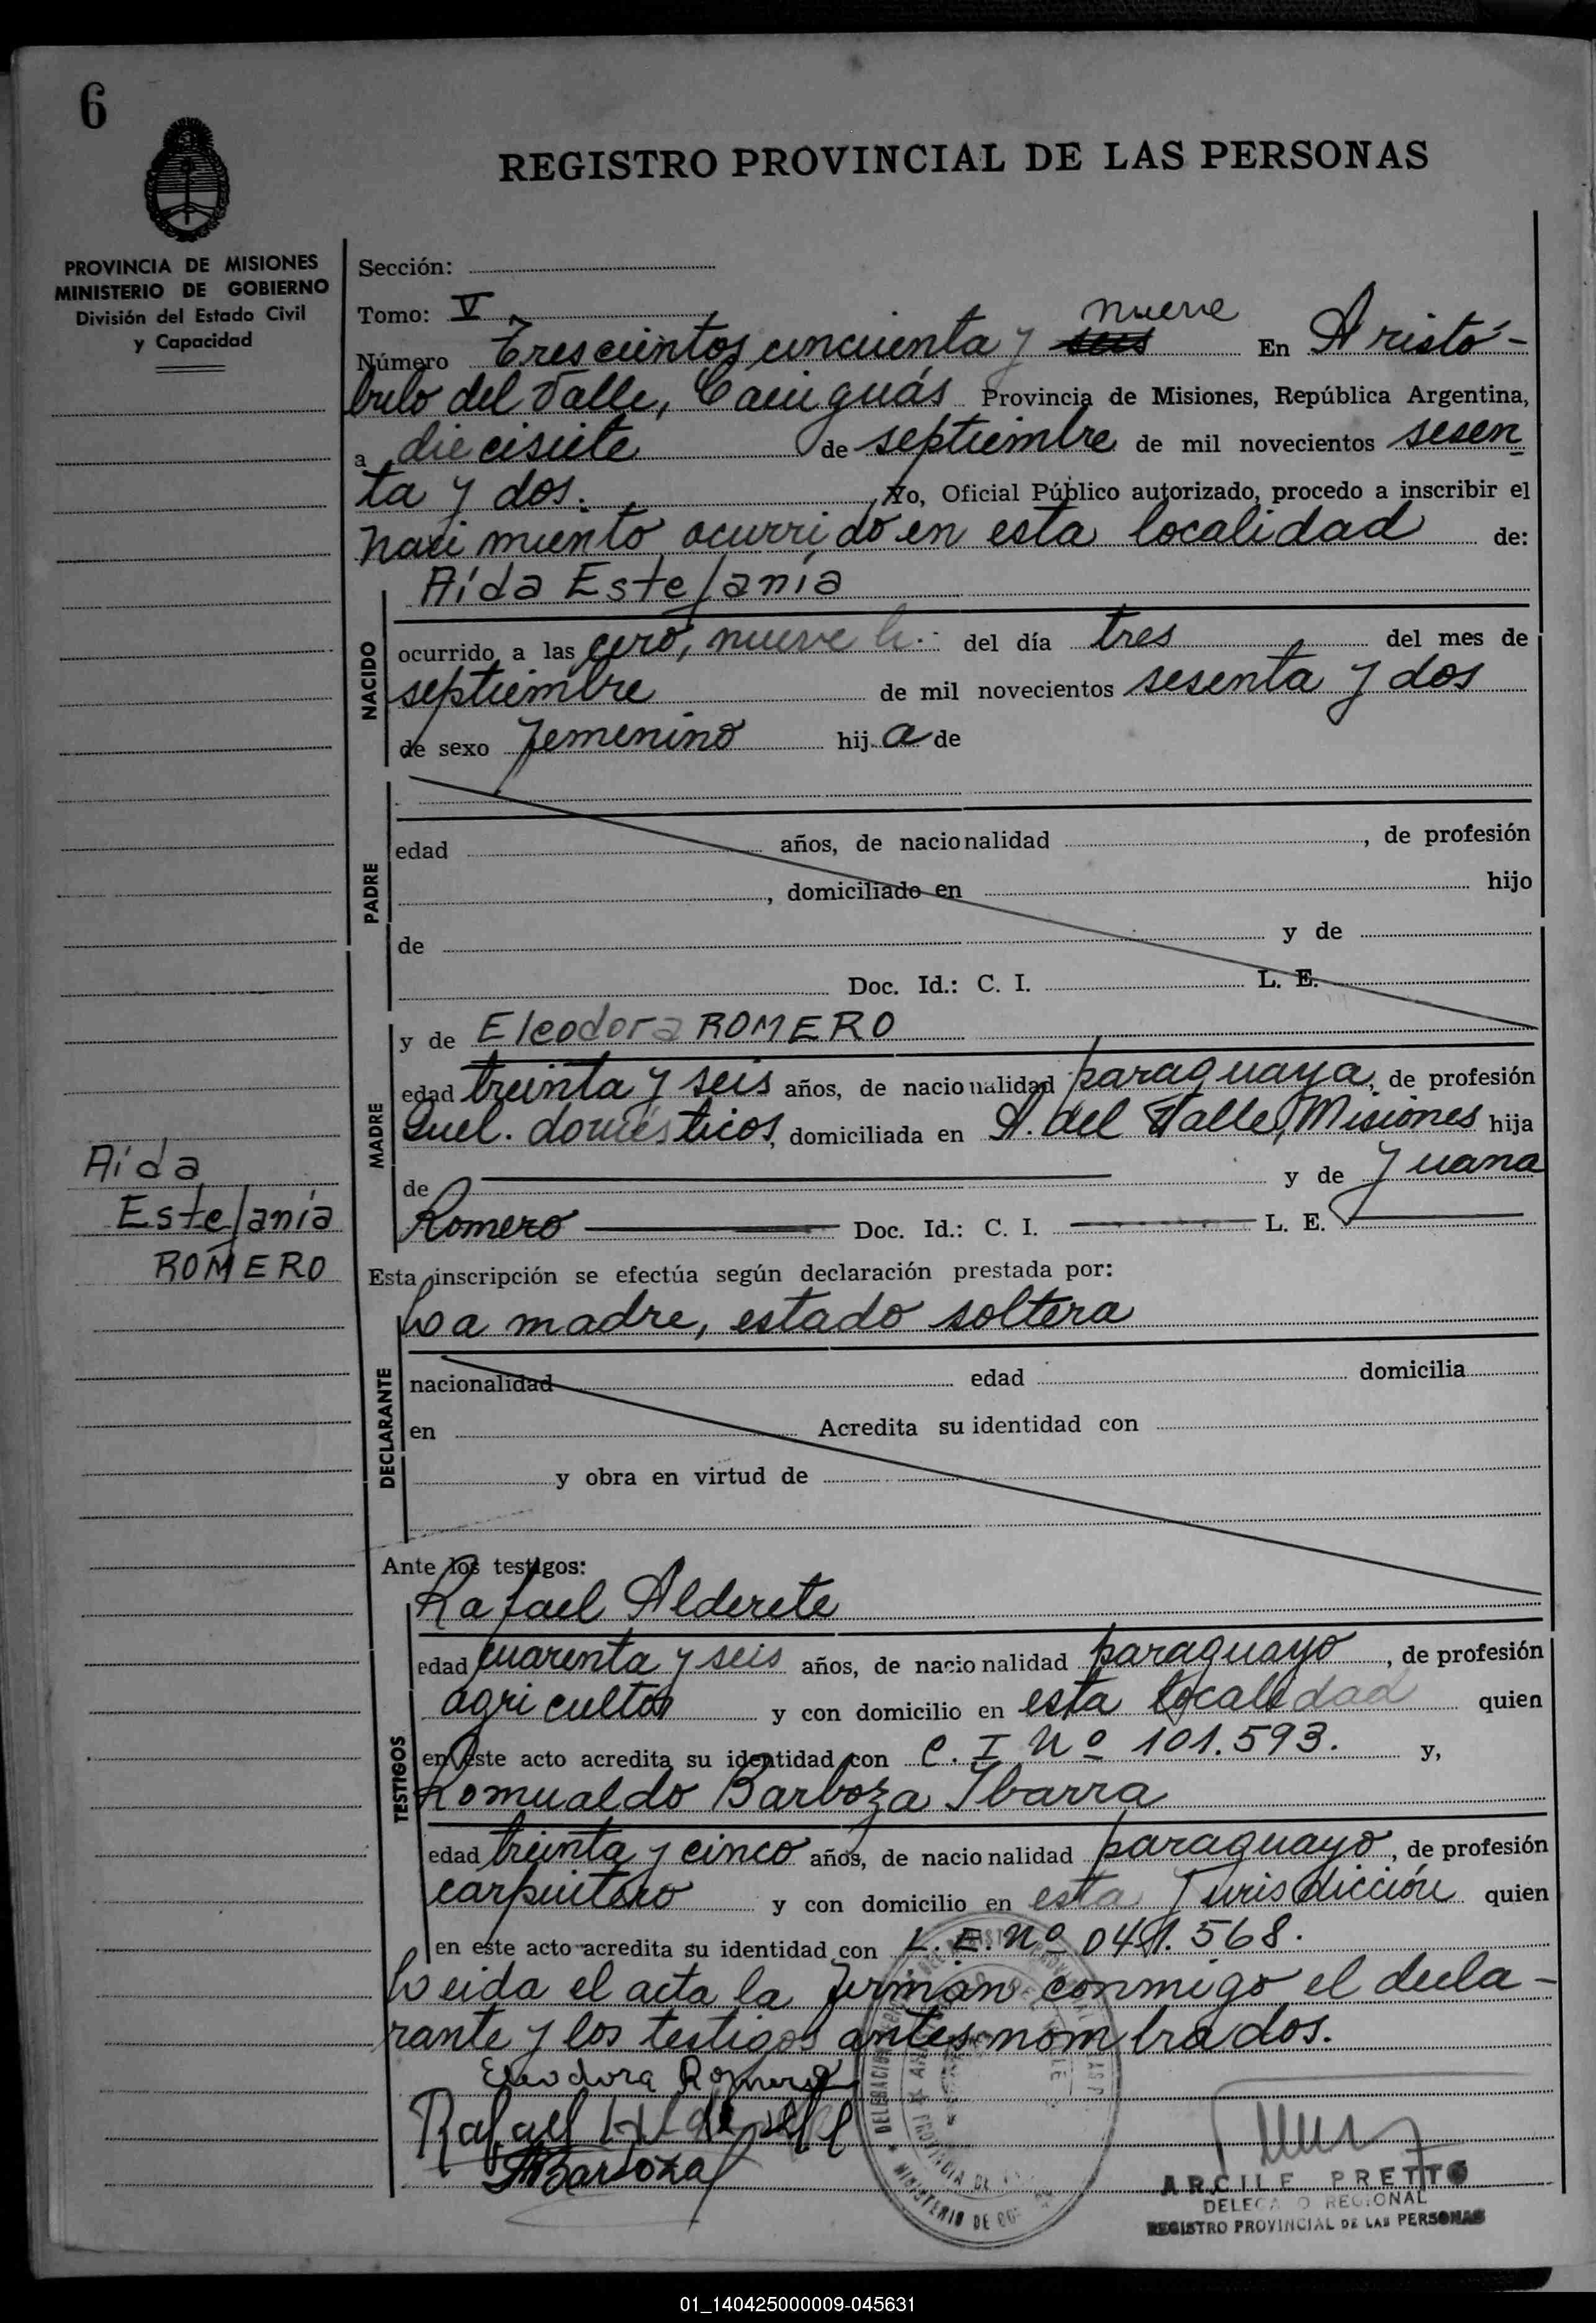 6
REGISTRO PROVINCIAL DE LAS PERSONAS
PROVINCIA DE MISIONES
MINISTERIO DE GOBIERNO
División del Estado Civil
y Capacidad
Sección:
Tomo: V
nueve
Número Trescientos cincuenta y seis En Aristó-
bulo del Valle, Cainguás Provincia de Misiones, República Argentina,
a diecisiete de septiembre de mil novecientos sesen
ta y dos. , Yo, Oficial Público autorizado, procedo a inscribir el
nacimiento ocurrido en esta localidad de:
Aída Estefanía
NACIDO
ocurrido a las cero, nueve h. del día tres del mes de
septiembre de mil novecientos sesenta y dos
de sexo femenino hij a de
PADRE
edad años, de nacionalidad , de profesión
, domiciliado en hijo
de y de
Doc. Id.: C. I. L. E.
MADRE
y de Eleodora ROMERO
edad treinta y seis años, de nacionalidad paraguaya, de profesión
Quel. domésticos, domiciliada en A. del Valle, Misiones hija
de y de Juana
Romero Doc. Id.: C. I. L. E.
Aída
Estefanía
ROMERO
Esta inscripción se efectúa según declaración prestada por:
La madre, estado soltera
DECLARANTE
nacionalidad edad domicilia
en Acredita su identidad con
y obra en virtud de
Ante los testigos:
Rafael Alderete
TESTIGOS
edad cuarenta y seis años, de nacionalidad paraguayo, de profesión
agricultor y con domicilio en esta localidad quien
en este acto acredita su identidad con C. I Nº 101.593. y,
Romualdo Barboza Ibarra
edad treinta y cinco años, de nacionalidad paraguayo, de profesión
carpintero y con domicilio en esta Jurisdicción quien
en este acto acredita su identidad con L. E. Nº 041.568.
Leida el acta la firman conmigo el decla-
rante y los testigos antes nombrados.
Eleodora Romero
Rafael Alderete
Barboza
ARCILE PRETTO
DELEGADO REGIONAL
REGISTRO PROVINCIAL DE LAS PERSONAS
MINISTERIO DE
01_140425000009-045631